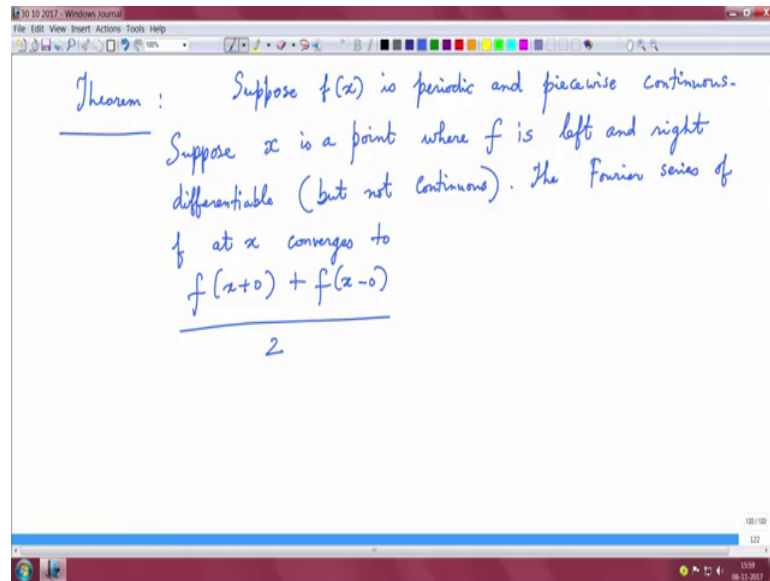 30 10 2017 - Windows Journal
File Edit View Insert Actions Tools Help
100%
Theorem : Suppose f(x) is periodic and piecewise continuous.
Suppose x is a point where f is left and right
differentiable (but not continuous). The Fourier series of
f at x converges to
f(x+0) + f(x-0)
2
122 / 122
122
15:59
06-11-2017